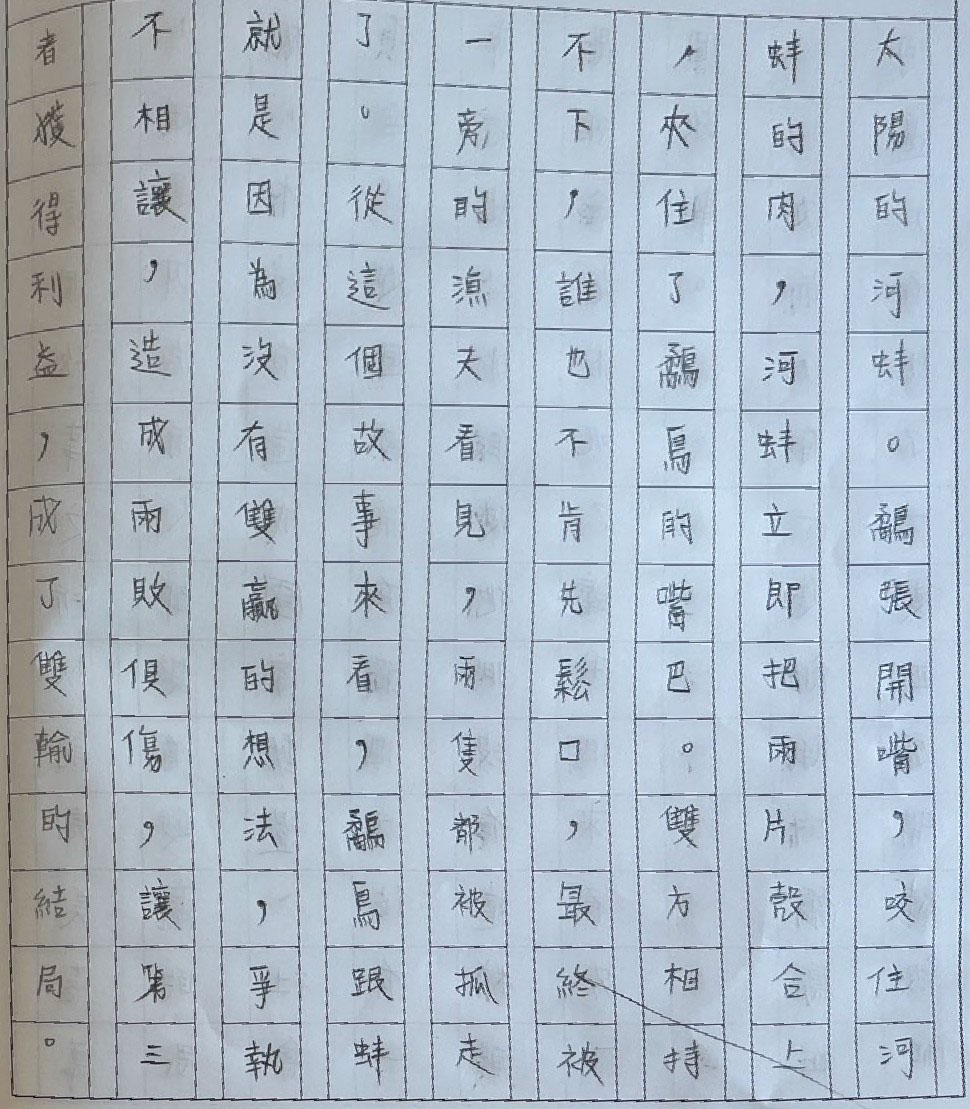 太陽的河蚌。鷸張開嘴，咬住河
蚌的肉，河蚌立即把兩片殼合上
，夾住了鷸鳥的嘴巴。雙方相持
不下，誰也不肯先鬆口，最終被
一旁的漁夫看見，兩隻都被抓走
了。從這個故事來看，鷸鳥跟蚌
就是因為沒有雙贏的想法，爭執
不相讓，造成兩敗俱傷，讓第三
者獲得利益，成了雙輸的結局。